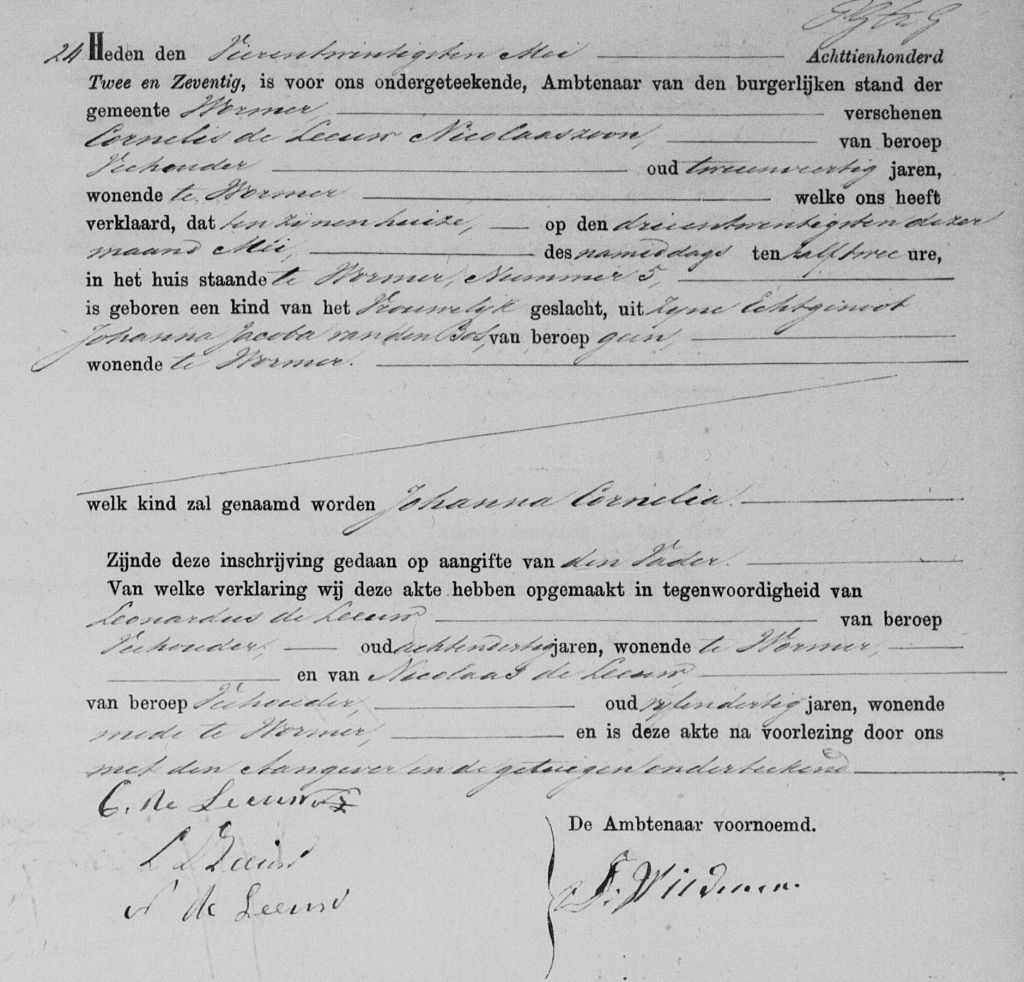 24 Heden den Vierentwintigsten Mei Achttienhonderd
Twee en Zeventig, is voor ons ondergeteekende, Ambtenaar van den burgerlijken stand der
gemeente Wormer, verschenen
Cornelis de Leeuw Nicolaaszoon, van beroep
Veehouder oud tweeenveertig jaren,
wonende te Wormer welke ons heeft
verklaard, dat ten zijnen huize, op den drieentwintigsten dezer
maand Mei, des namiddags ten half twee ure,
in het huis staande te Wormer, Nummer 5,
is geboren een kind van het Vrouwelijk geslacht, uit zyne Echtgenoot
Johanna Jacoba van den Bos, van beroep geen,
wonende te Wormer.
welk kind zal genaamd worden Johanna Cornelia.
Zijnde deze inschrijving gedaan op aangifte van den Vader.
Van welke verklaring wij deze akte hebben opgemaakt in tegenwoordigheid van
Leonardus de Leeuw van beroep
Veehouder, oud achtendertig jaren, wonende te Wormer,
en van Nicolaas de Leeuw
van beroep Veehouder, oud vyfendertig jaren, wonende
mede te Wormer, en is deze akte na voorlezing door ons
met den Aangever en de getuigen onderteekend
C. de Leeuw Nz
L d Leeuw
N de Leeuw
De Ambtenaar voornoemd.